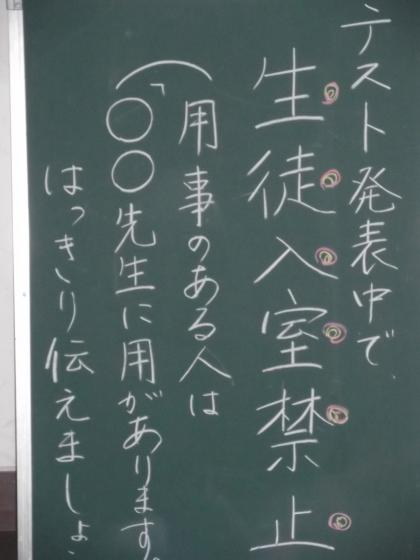 テスト発表中で、
生徒入室禁止
(用事のある人は
「〇〇先生に用があります。
はっきり伝えましょ